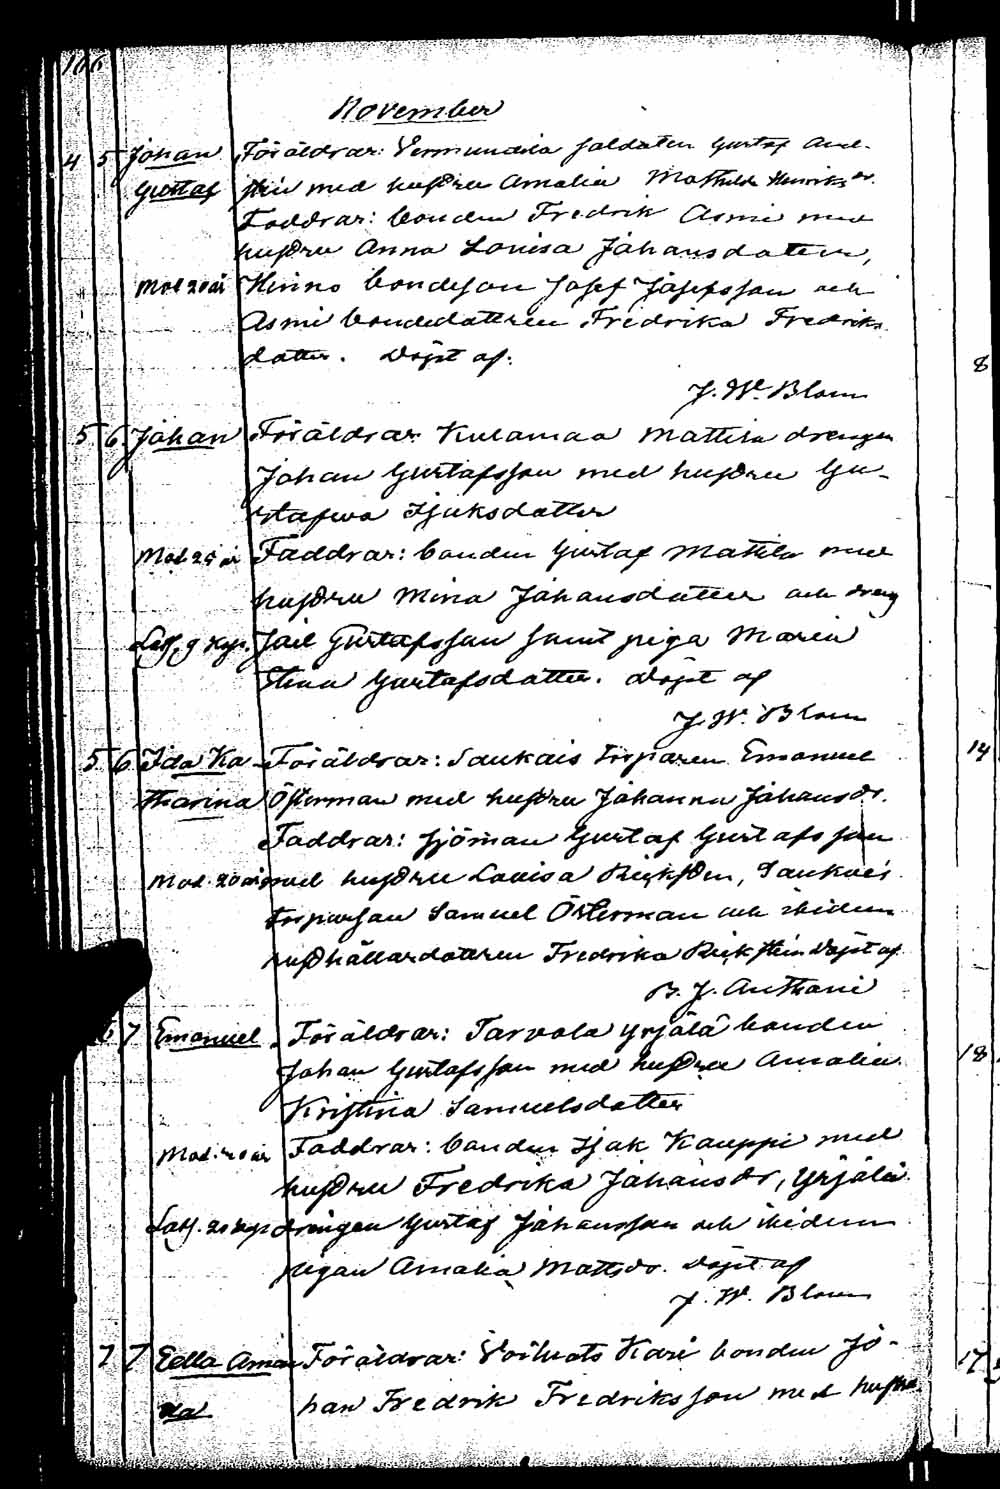 166
November
4 5 Johan Föräldrar: Vermundila soldaten Gustaf
Gustaf med hustru Amalia Mathilda Henriksdr.
Faddrar: bonden Fredrik Asmi med
hustru Anna Lovisa Johansdotter,
Mod 20 år Hinno bondeson Josef Josefsson och
Asmi bondedottren Fredrika Fredriks
dotter. Döpt af:
8
J. W. Blom
5 6 Johan Föräldrar: Kulamaa Mattila drengen
Johan Gustafsson med hustru Gu-
stafva Isaksdotter
Mod 25 år Faddrar: bonden Gustaf Mattila med
hustru Mina Johansdotter och dreng
Gustafsson samt piga Maria
Stina Gustafsdotter. Döpt af
J. W. Blom
5 6 Ida Ka- Föräldrar: Saukais torparen Emanuel
14
tharina Österman med hustru Johanna Johansdr.
Faddrar: sjöman Gustaf Gustafsson
Mod. 20 år med hustru Lovisa
torparson Samuel Österman och ibidem
Fredrika Döpt af
B. J. Anthoni
6 7 Emanuel Föräldrar: Tarvola Yrjälä bonden
18
Johan Gustafsson med hustru Amalia
Kristina Samuelsdotter
Faddrar: bonden Isak Kauppi med
hustru Fredrika Johansdr, Yrjälä
drengen Gustaf Johansson och ibidem
pigan Amalia Mattsdr. Döpt af
J. W. Blom
7 7 Edla Aman Föräldrar: Kari bonden Jo-
17
da han Fredrik Fredriksson med hustru